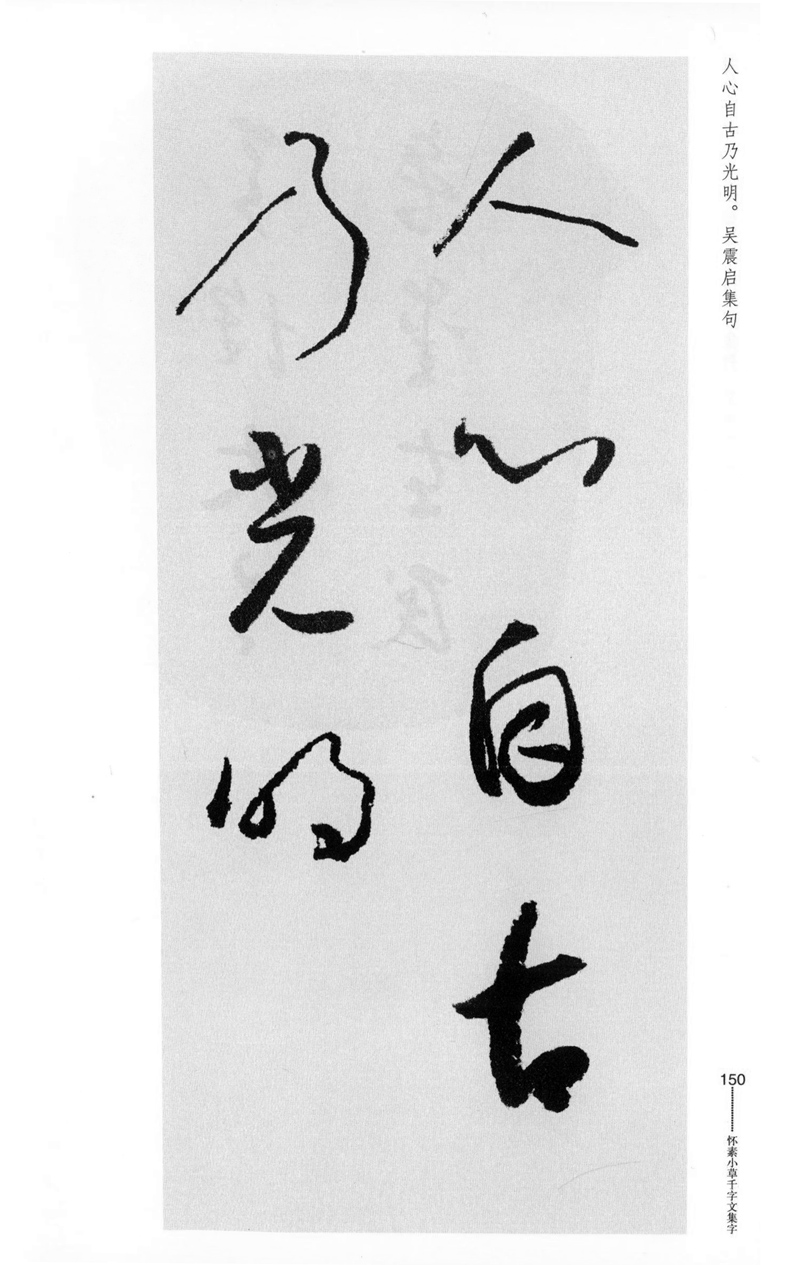 人心自古乃光明。吴震启集句
人心自古
乃光明
150
怀素小草千字文集字